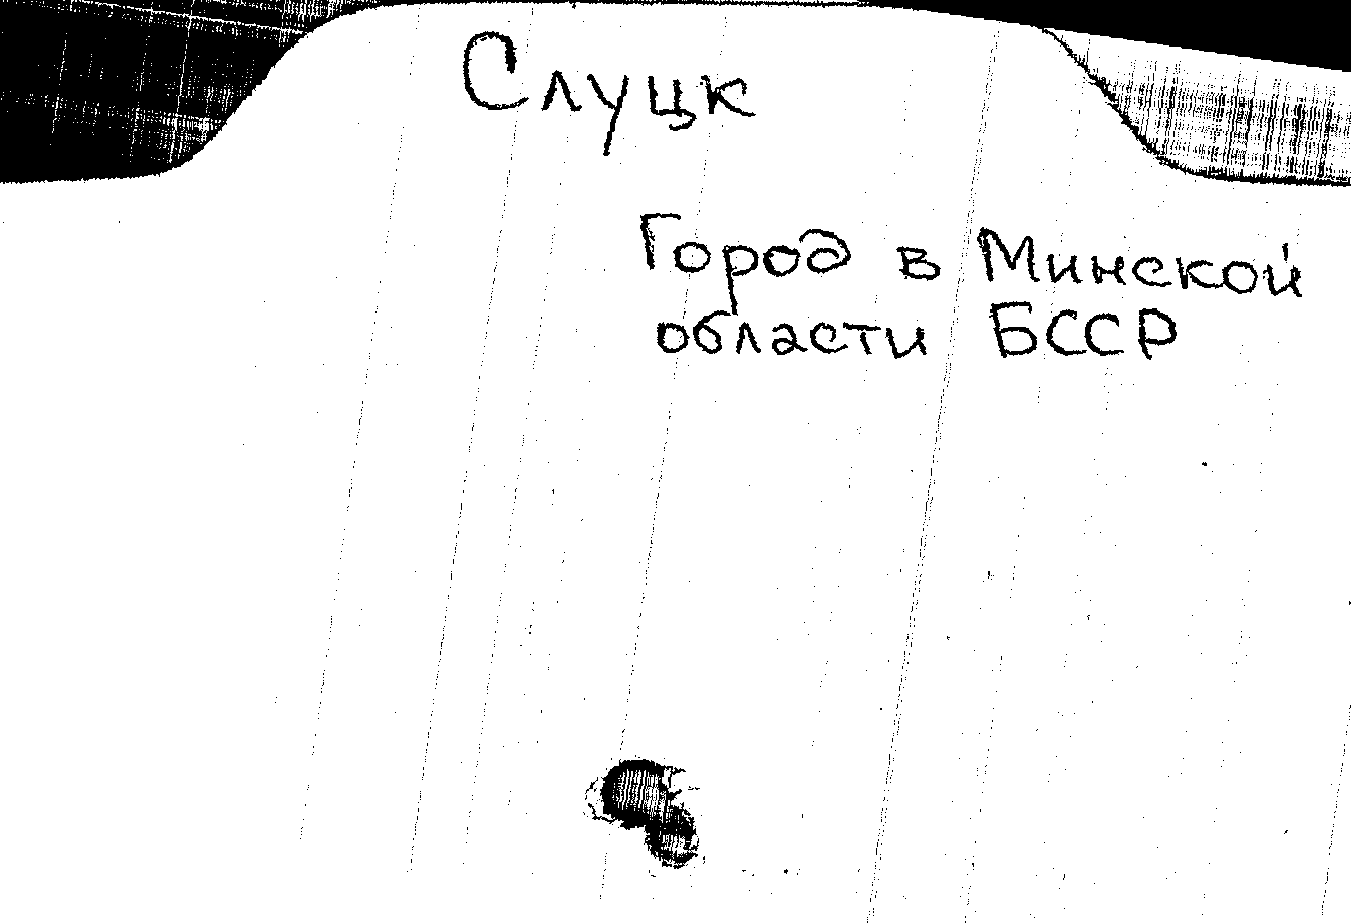 Слуцк
Город в Минской
области БССР